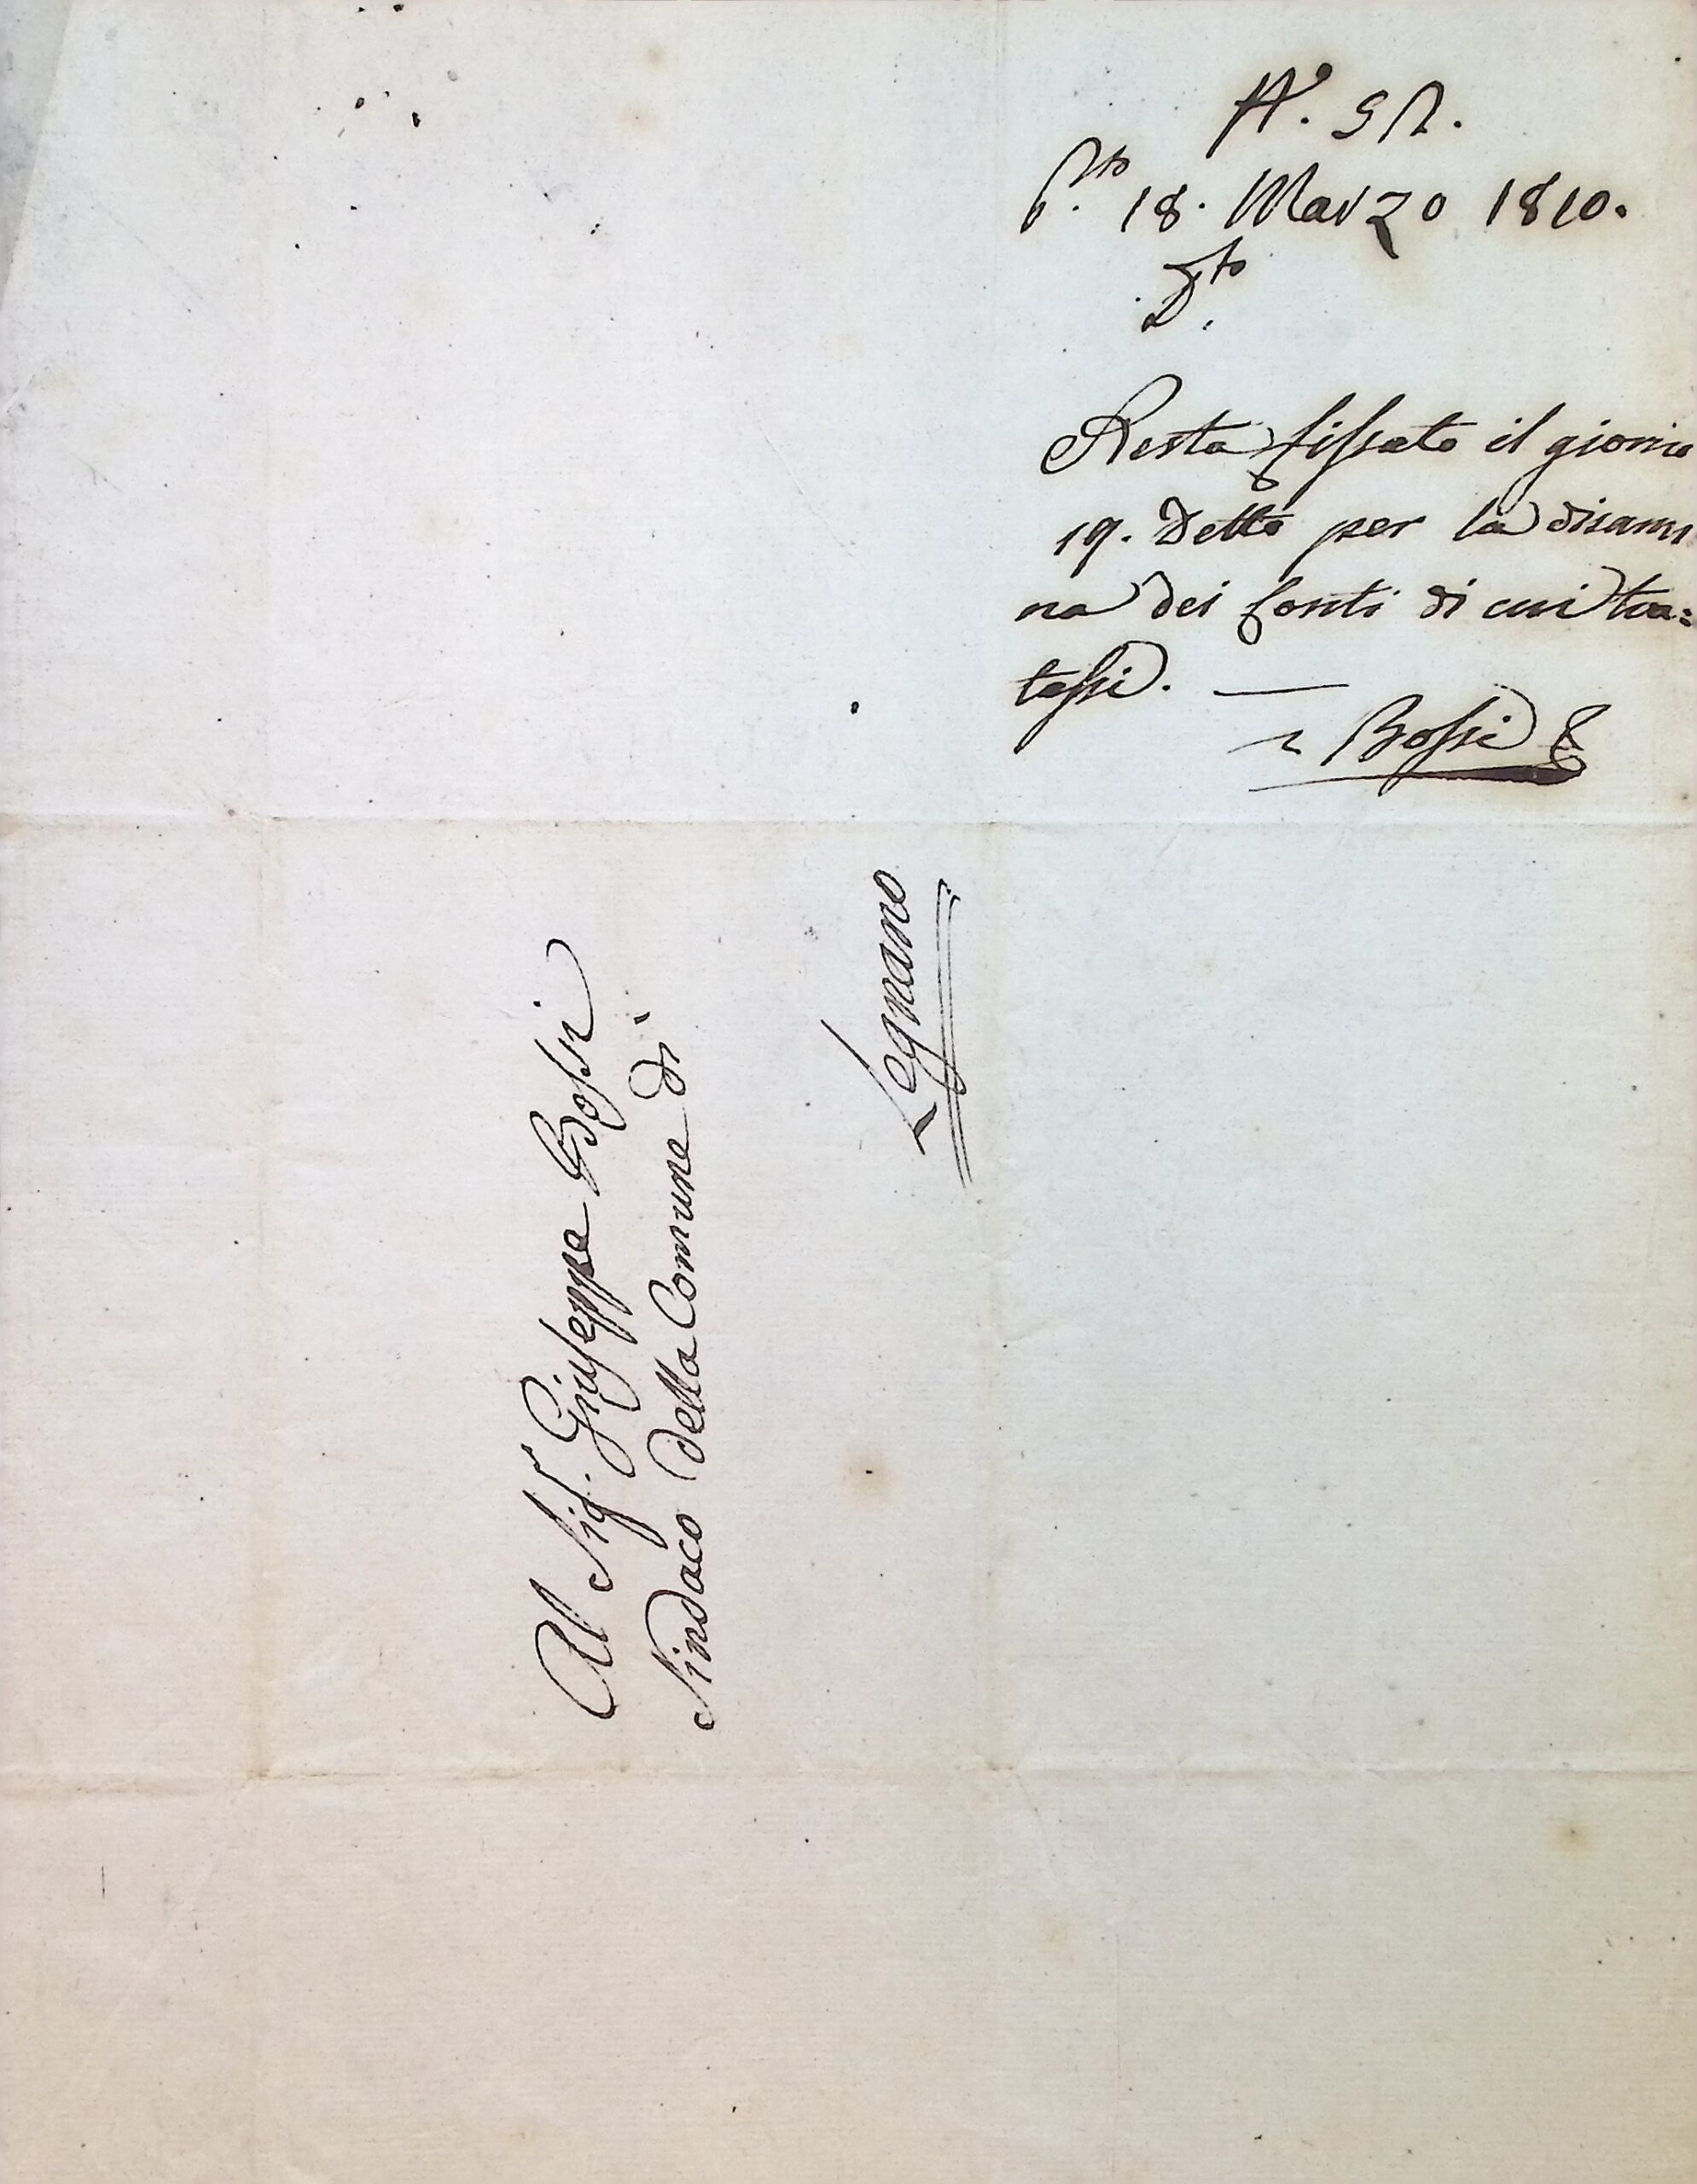 18. Marzo 1810.
Dto.
Resta fissato il giorno
19. Detto per la disami
na dei Conti di cui tra=
tassi. —
Bossi
Al Sigr. Giuseppe Bossi
Sindaco della Comune di
Legnano